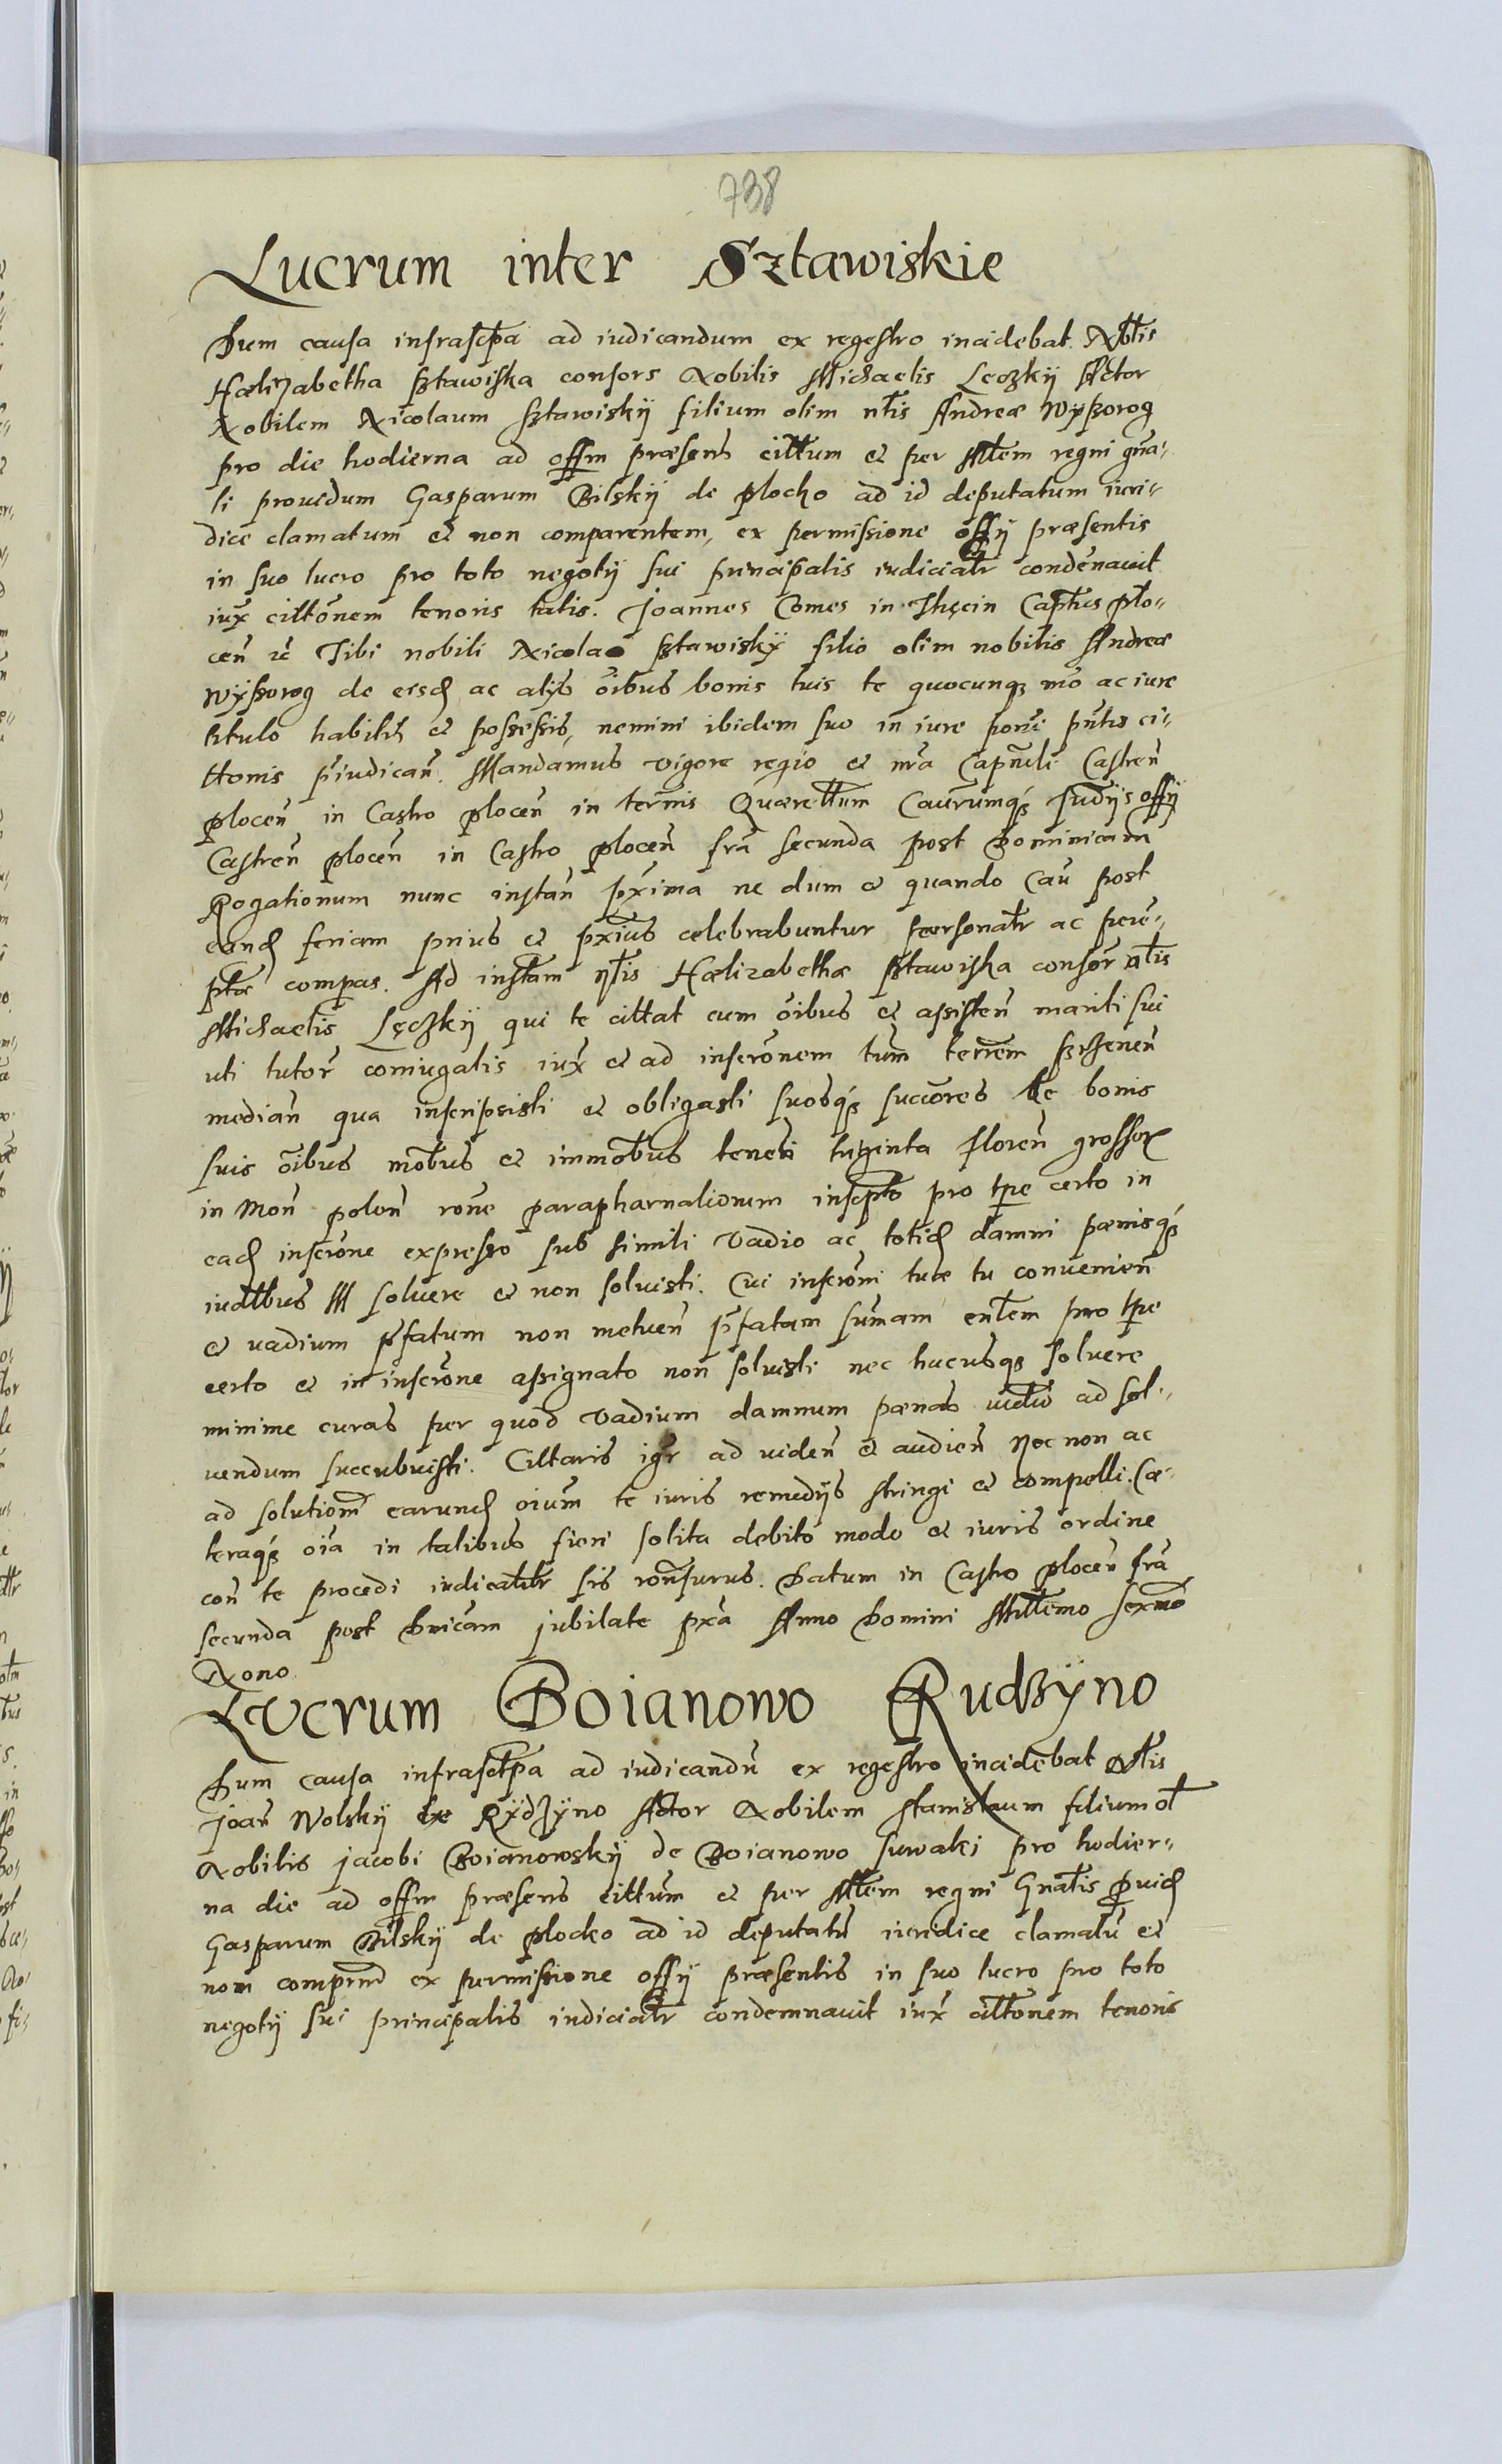 738
Lucrum inter Sztawiskie
Dum causa infrascpta ad iudicandum ex regestro incidebat. Nbtis
Hælizabetha Sztawiska consors Nobilis Michaelis Lęczkÿ Actor
Nobilem Nicolaum Sztawiskÿ filium olim ntis Andreæ Wÿszorog
pro die hodierna ad offm præsens cittum et per Mtem regni gna-
li prouidum Gasparum Bilskÿ de Plocko ad id deputatum iuri-
dice clamatum et non comparentem, ex permissione offÿ præsentis
in suo lucro pro toto negotÿ sui principalis iudiciatr condenauit
iux cittonem tenoris talis. Joannes Comes in Thęcin Captus plo-
cen ec Tibi nobili Nicolao Sztawiskÿ filio olim nobilis Andreæ
Wÿszorog de eisd ac alÿs oibus bonis tuis te quocunq mo ac iure
titulo habitis et possessis, nemini ibidem suo in iure pone pntis ci-
ttonis piudican. Mandamus vigore regio et nra Capnali Castren
plocen in Castro plocen in termis Quærellum Caurumq Judÿs offÿ
Castren plocen in Castro plocen fra secunda post Dominicam
Rogationum nunc instan pxima ne dum et quando Cau post
eand feriam prius et pxius celebrabuntur personatr ac pere-
ptæ compas. Ad instam ntis Hælizabethæ Sztawiska consor ntis
Michaelis Lęczkÿ qui te cittat cum oibus et assisten mariti sui
uti tutor coniugalis iux et ad inscronem tum terrem Szrzenen
median qua inscripsisti et obligasti suosq succores de bonis
suis oibus mobus et immobus teneri triginta floren grossor
in Mon polon rone parapharnalionum inscpto pro tpe certo in
ead inscrone expresso sub simili vadio ac totid damni pænisq
iudtbus III soluere et non soluisti. Cui inscroni tuæ tu conuenien
et uadium pfatum non metuen pfatam sumam entem pro tpe
certo et in inscrone assignato non soluisti nec hucusq soluere
minime curas per quod vadium damnum pænas ad sol-
uendum succubuisti. Cittaris igr ad uiden et audien Nec non ac
ad solutiom earund oium te iuris remedÿs stringi et compelli. Cæ-
teraq oia in talibus fieri solita debito modo et iuris ordine
con te procedi iudicatitr sis ronsurus. Datum in Castro plocen fra
secunda post Dnicam jubilate pxa Anno Domini Millemo sexmo
Nono.
Lucrum Boianowo Rudzÿno
Dum causa infrasctpa ad iudicandu ex regestro incidebat Ntis
Joan Wolskÿ de Rÿdzÿno Actor Nobilem Stanislaum filium ol
Nobilis jacobi Boianowskÿ de Boianowo suwaki pro hodier-
na die ad offm præsens cittum et per Mtem regni Gnatis puid
Gasparum Bilskÿ de plocko ad id deputatu iuridice clamatu et
non comprn ex permissione offÿ præsentis in suo lucro pro toto
negotÿ sui principalis iudiciatr condemnauit iux cittonem tenoris